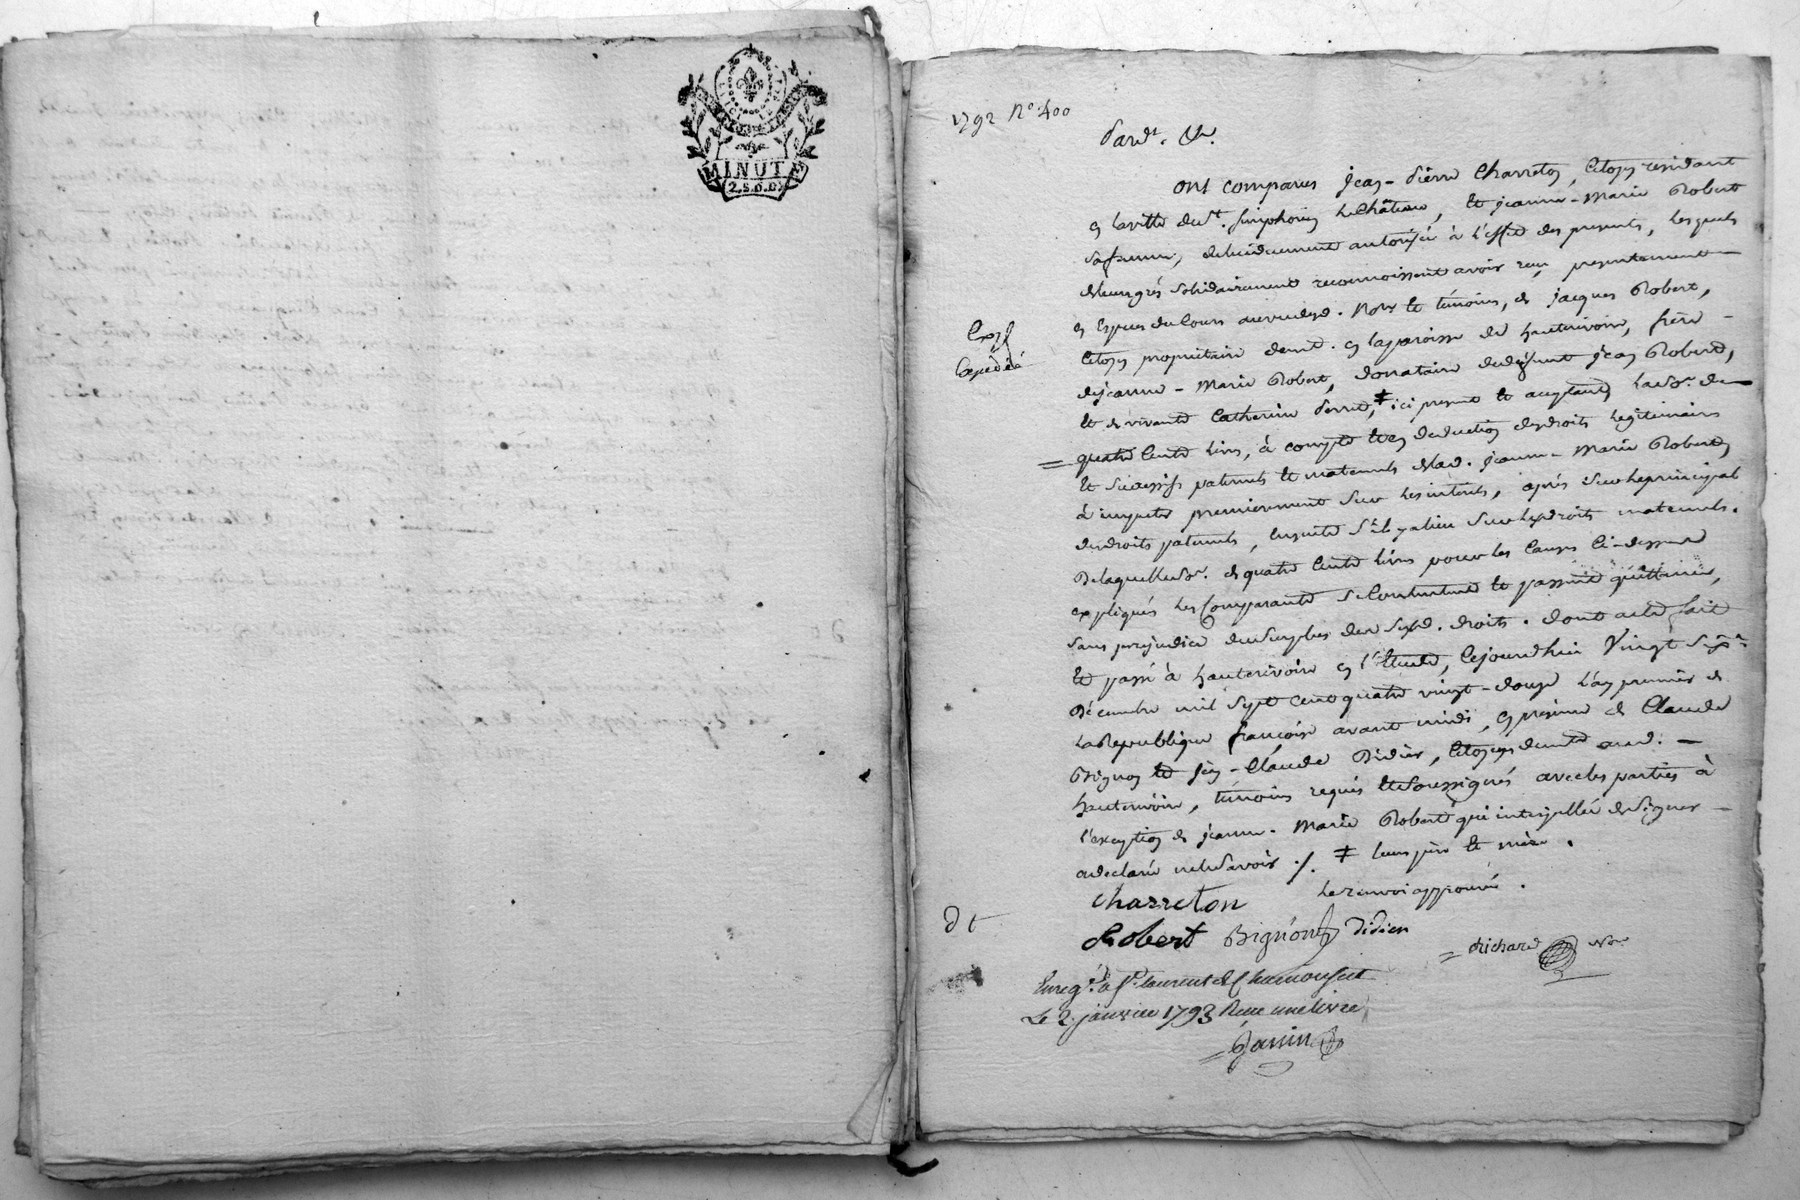 MINUTE
2. S. 6. D.
1792 N.o 400
Pard.t &.
Ont comparus Jean-Pierre Charreton, Citoyen residant
en la ville de St. Simphorien Le Château, et jeanne-Marie Robert
sa femme, de lui duement autorisée à l'effet des presents, Lesquels
de leur grés solidairement reconnoissent avoir reçu presentement
en Espèces du Cours au vu desd. Nore et temoins, de jacques Robert,
Citoyen proprietaire demt. en la paroisse de hauterivoire, frère
de jeanne-Marie Robert, donataire de defunt jean Robert,
et de vivante Catherine ‡ ici present et acceptant, La so.e de
quatre Cents livres, à compte et en deduction des droits legitimaires
Et Successifs paternels et maternels de lad. jeanne-Marie Robert
à imputer premierement sur les interets, après sur le principal
des droits paternels, ensuite s'il y a lieu sur les droits maternels.
De laquelle so.e de quatre Cents livres pour les Causes Ci-dessus
expliqués les Comparants se Contentent et passent quittance,
sans prejudice du surplus des susd. droits. dont acte fait
et passé à hauterivoire en l'Etude, Cejourdhui Vingt six
Décembre mil Sept Cent quatre vingt-douze L'an premier de
La Republique françoise avant midi, en presence de Claude
Bignon et Jean-Claude Didier, Citoyens demts aud.
hauterivoire, temoins requis et Soussignés avec les parties à
l'exception de jeanne-Marie Robert qui interpellée de signer
a declaré ne le savoir ./. ‡ leurs père et mère.
Le renvoi approuvé.
Expédiée
Charreton
Robert Bignon Didier
Richard Nore
Dt
Enreg.é à St. laurent de Chamousset
Le 2. janvier 1793 Reçu une livre
Janin